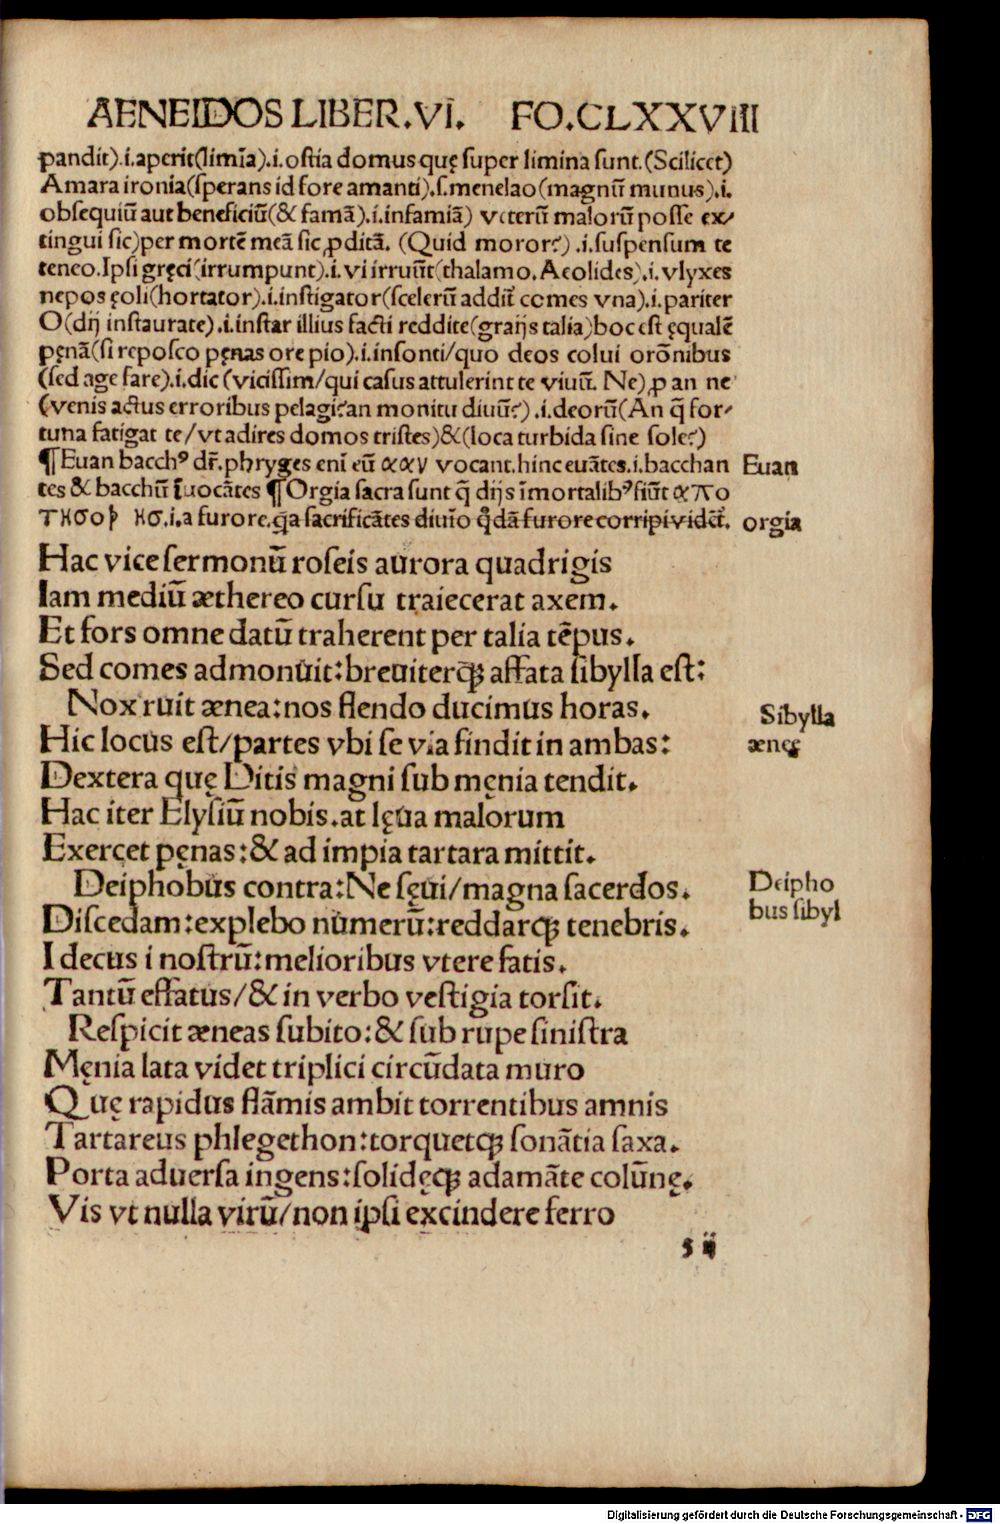 AENEIDOS LIBER.VI. FO.CLXXVIII
pandit).i.aperit(limīa).i.ostia domus quę super limina sunt.(Scilicet)
Amara ironia(sperans id fore amanti).s.menelao(magnū munus).i.
obsequiū aut beneficiū(& famā).i.infamiā) veterū malorū posse ex/
tingui sic)per mortē meā sic ꝓditā. (Quid moror?).i.suspensum te
teneo.Ipsi gręci(irrumpunt).i.vi irruūt(thalamo.Aeolides).i.vlyxes
nepos ęoli(hortator).i.instigator(scelerū addit comes vna).i.pariter
O(dij instaurate).i.instar illius facti reddite(graijs talia)hoc est ęqualē
pęnā(si reposco pęnas ore pio).i.insonti/quo deos colui orōnibus
(sed age fare).i.dic (vicissim/qui casus attulerint te viuū. Ne)ꝓ an ne
(venis actus erroribus pelagi?an monitu diuū?).i.deorū(An q̄ for/
tuna fatigat te/vt adires domos tristes)&(loca turbida sine sole?)
¶Euan bacchꝰ dr̄.phryges enī eū ααν vocant.hinc euātes.i.bacchan Euan
tes & bacchū īuocātes ¶Orgia sacra sunt q̄ dijs īmortalibꝰ fiūt απο
.i.a furore.q̄a sacrificātes diuīo q̄dā furore corripi vidēt̄. orgia
Hac vice sermonū roseis aurora quadrigis
Iam mediū æthereo cursu traiecerat axem.
Et fors omne datū traherent per talia tēpus.
Sed comes admonuit:breuiterq̨ affata sibylla est:
Nox ruit ænea:nos flendo ducimus horas. Sibylla
Hic locus est/partes vbi se via findit in ambas: ænęę
Dextera quę Ditis magni sub męnia tendit.
Hac iter Elysiū nobis.at lęua malorum
Exercet pęnas:& ad impia tartara mittit.
Deiphobus contra:Ne sęui/magna sacerdos. Deipho
Discedam:explebo numerū:reddarq̨ tenebris. bus sibyl
I decus i nostrū:melioribus vtere fatis.
Tantū effatus/& in verbo vestigia torsit.
Respicit æneas subito:& sub rupe sinistra
Męnia lata videt triplici circūdata muro
Quę rapidus flāmis ambit torrentibus amnis
Tartareus phlegethon:torquetq̨ sonātia saxa.
Porta aduersa ingens:solidęq̨ adamāte colūnę.
Vis vt nulla virū/non ipsi excindere ferro
s ii
Digitalisierung gefördert durch die Deutsche Forschungsgemeinschaft - DFG